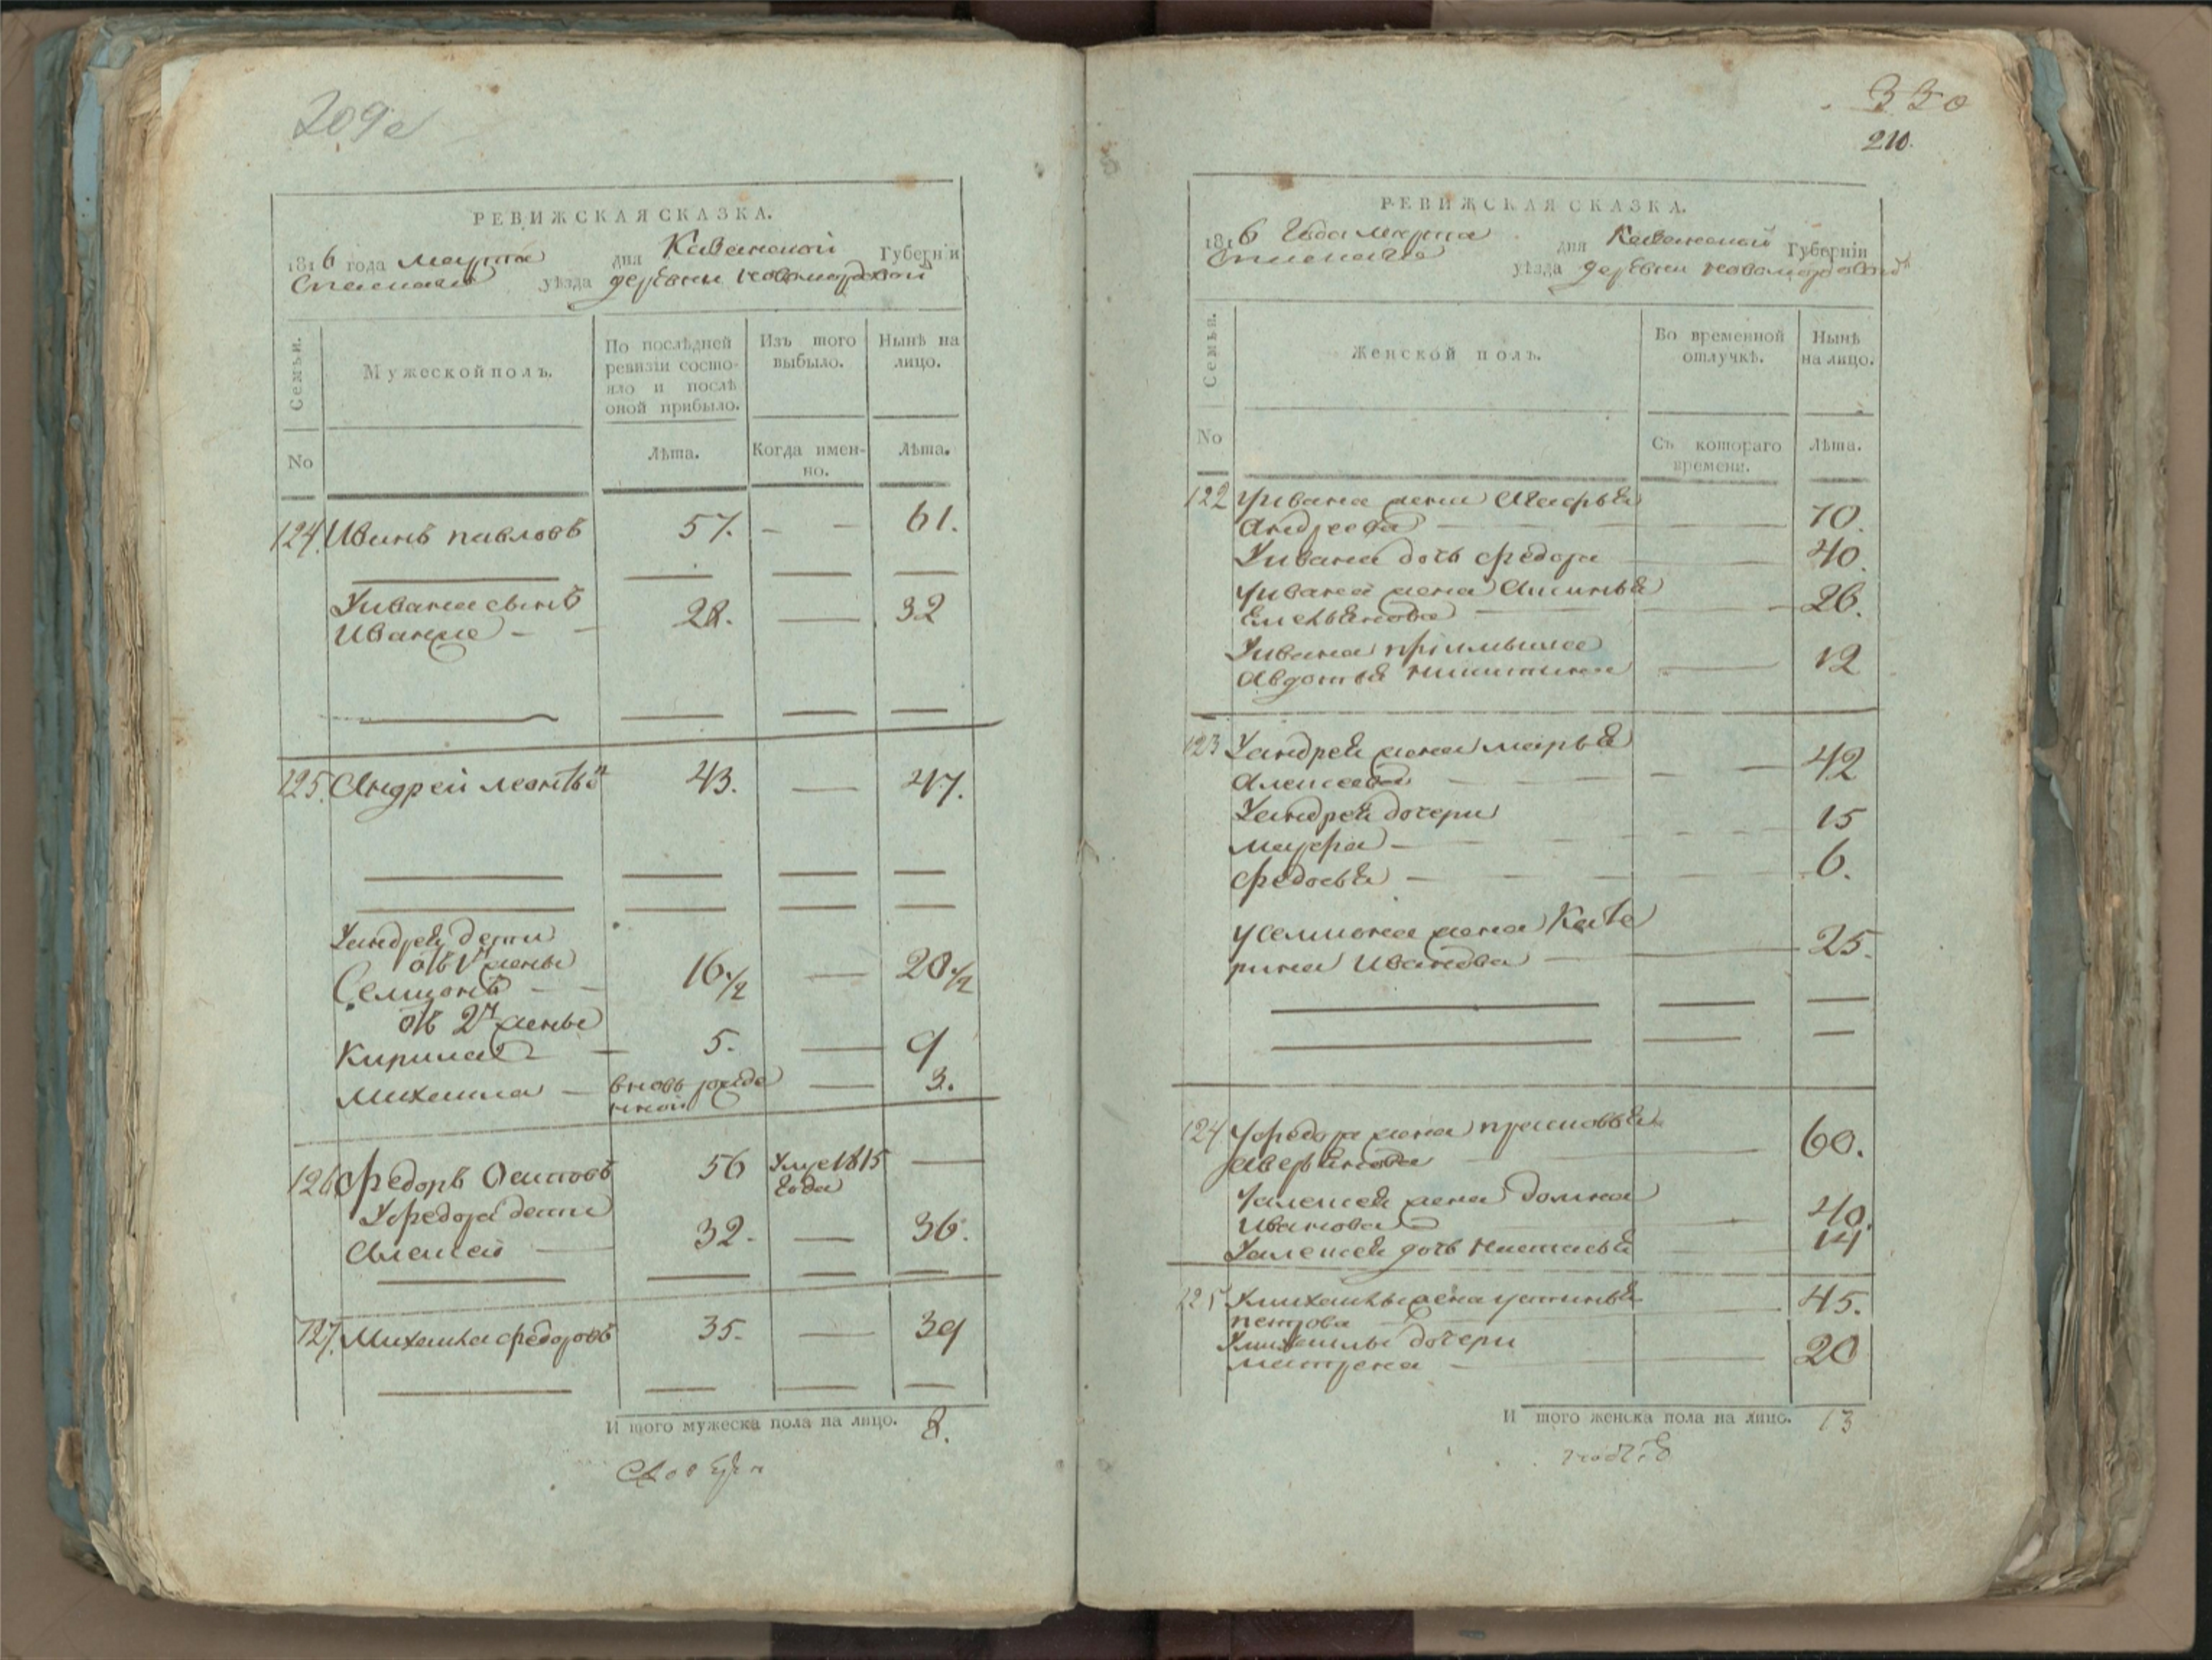 209
РЕВИЖСКАЯ СКАЗКА.
1816 года марта дня Казанской Губерніи
Спаскаго уѣзда деревни Новомордовой
Семьи.
Мужеской полъ.
По послѣдней ревизіи состояло и послѣ оной прибыло.
Изъ того выбыло.
Нынѣ на лицо.
No
Лѣта.
Когда именно.
Лѣта.
124. Иванъ павловъ 57. — — 61.
Уивана сынъ
Иванже — — 28. — 32
125. Андрей леонтьѣ 43. — 47.
Уандрея дети
отъ 1й жены
Семионъ — — 16 1/2 — 20 1/2
отъ 2й жены
Кирила — 5. — 9
Михаила — вновь рожде — 3.
нной
126 Федоръ Осиповъ 56 Умре 1815 —
года
Уфедора дети
Алексей — 32. — 36.
127. Михаила федоровъ 35. — 39
И того мужеска пола на лицо. 8.
330
210.
РЕВИЖСКАЯ СКАЗКА.
1816 Года марта дня Казанской Губерніи
Спаскаго уѣзда деревни Новомордовой
Семьи.
Женской полъ.
Во временной отлучкѣ.
Нынѣ на лицо.
No
Съ котораго времени.
Лѣта.
122 Уивана жена Марфья
Андреева — — 70.
Уивана дочь федора — 40.
Уивана жена Аксинья
Емельянова — — 26.
Уивана пріимышна
Авдотья никитина — 12
123 Уандрея жена марья
Алексеева — — 42
Уандрея дочери
мауфра — — 15
федосья — — 6.
Усемиона жена Кате
рина Иванова — 25.
124 Уфедора жена прасковья
Аверьянова — 60.
Уалексея жена Домна
Иванова — 40.
Уалексея дочь настасья 14
125 Умихаилы жена устинья 45.
петрова —
Умихаилы дочери
матрена — 20
И того женска пола на лицо. 13